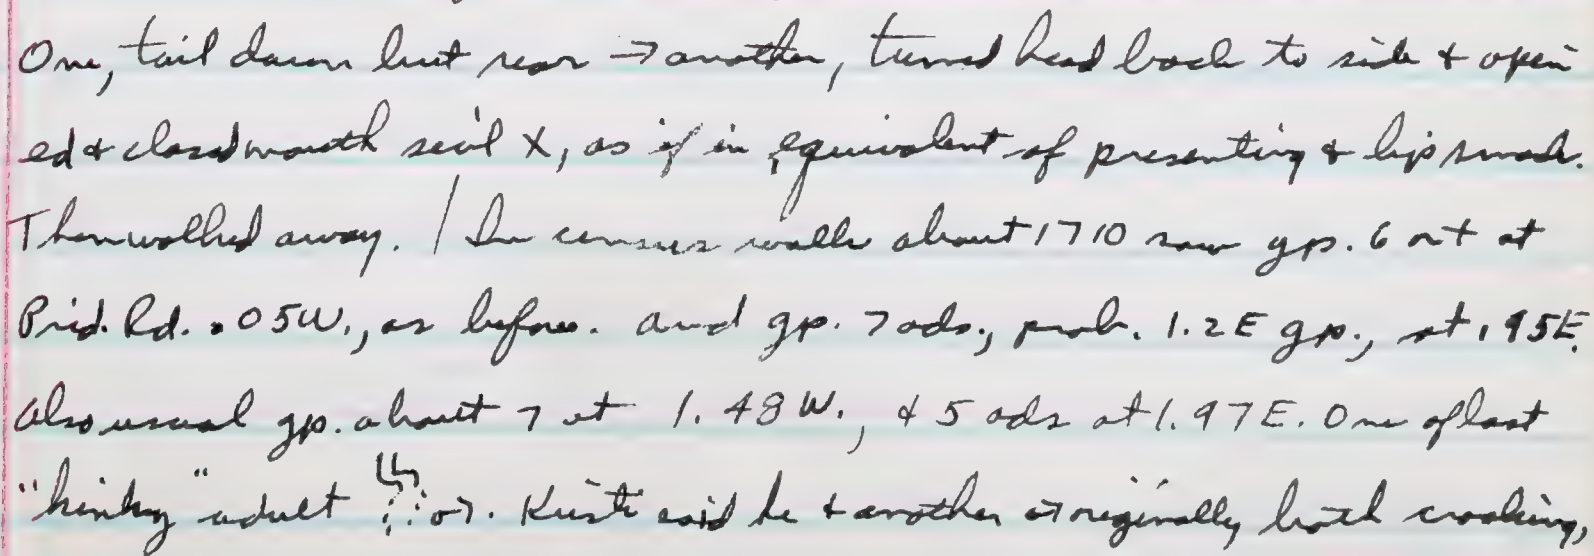 One, tail down but rear → another, turned head back to side & open
ed & closed mouth sev'l X, as if in equivalent of presenting & lip smack.
Then walked away. / In census walk about 1710 saw gp. 6 at
Prid. Rd. .05W., as before. And gp. 7 ads., prob. 1.2E gp., at .95E.
Also usual gp. about 7 at 1.48W., & 5 ads at 1.97E. One of last
"kinky" adult ♂. Kristi said he & another ♂ originally both croaking,